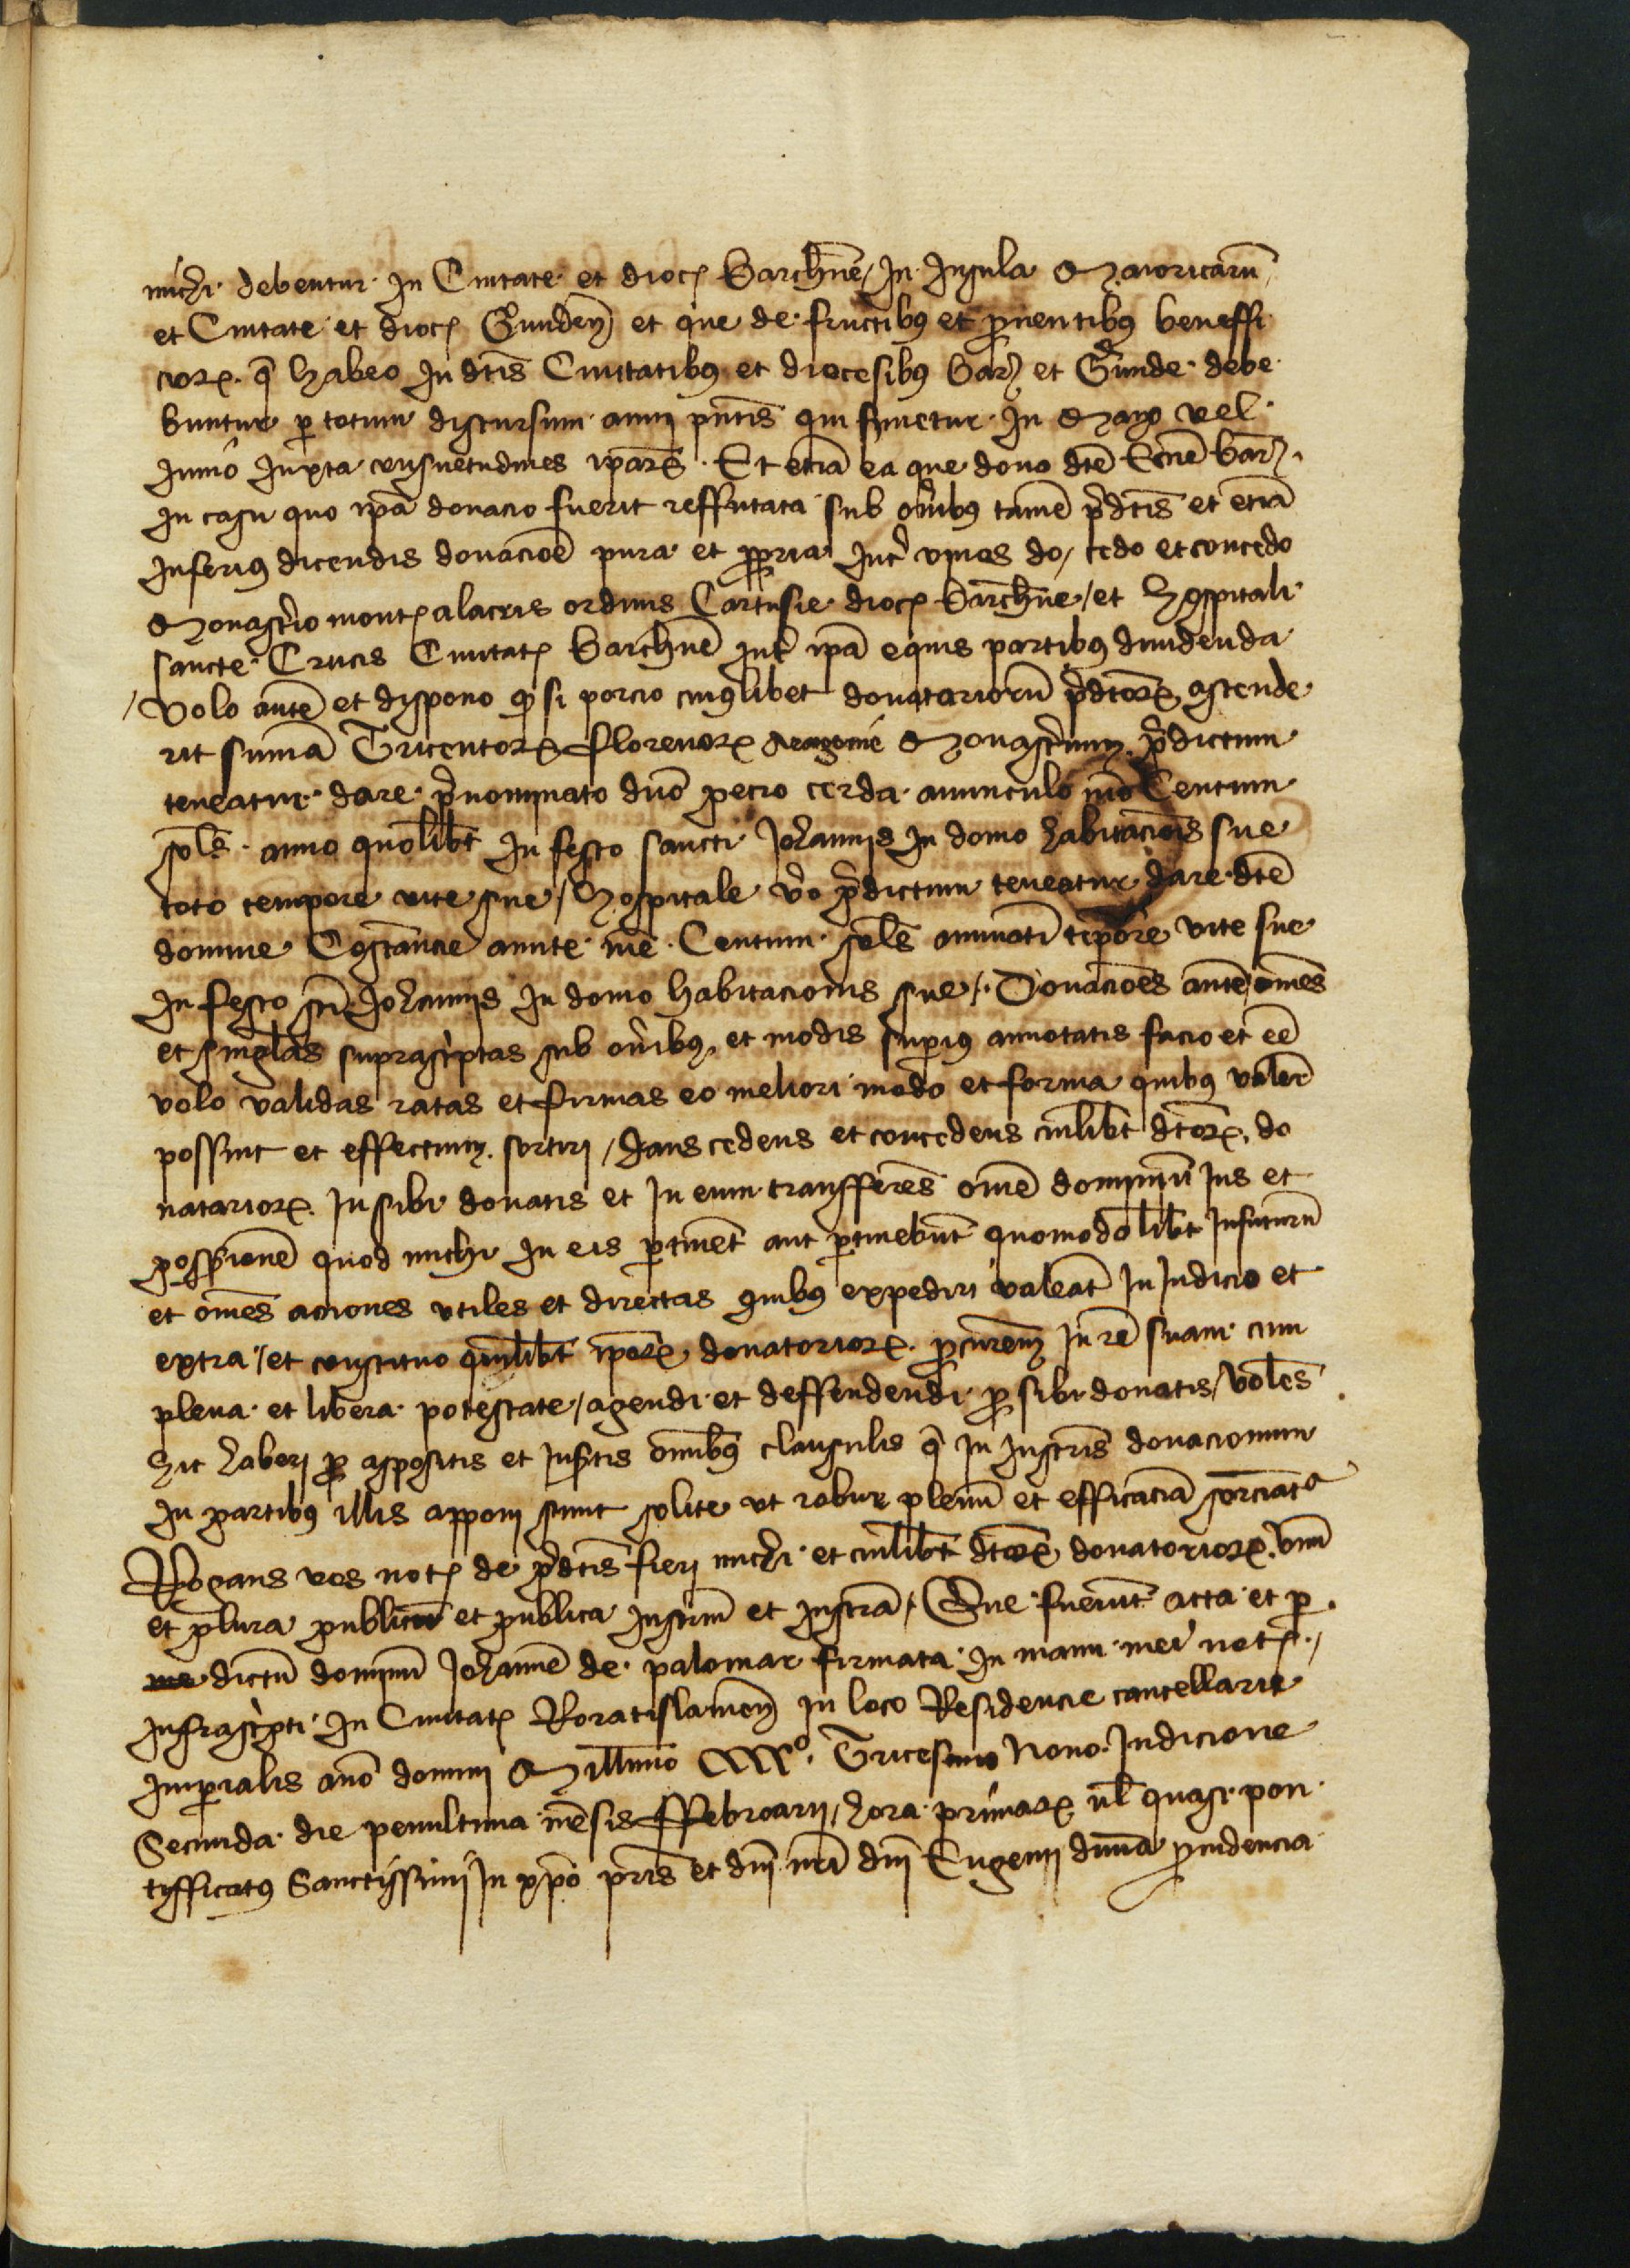 michi debentur in Civitate et dioc̄ Barch̄ne / In Insula Maioricarū
et Civitate et dioc̄ Gerunden̄ et que de fructibꝰ et ꝓventibꝰ beneffi
ciorꝝ q̄ habeo in dc̄tis Civitatibꝰ et diocesibꝰ Barc̄ et Gerunde debe
buntur ꝑ totum discursum anni p̄ntis qui finietur in Mayo vel
Junio Juxta consuetudines ip̄arꝝ. Et etiā ea que dono dc̄te Ecc̄ie Barc̄
In casu quo ip̄a donacio fuerit reffutata sub on̄ibꝰ tamē p̄dc̄tis et etiā
Inferiꝰ dicendis donacioē pura et ꝓpria Int̄ vivos do / cedo et concedo
Monasterio mont̄ alacris ordinis Cartusie dioc̄ Barch̄ne / et hospitali
sancte Crucis Civitat̄ Barch̄ne Int̄ ip̄a equis partibꝰ dividenda
/ Volo autē et dispono ꝙ si porcio cuiuslibet donatariorū p̄dc̄torꝝ ascende
rit sumā Tricentorꝝ florenorꝝ Aragonie Monasteriuꝫ p̄dictum
teneatur dare p̄nominato dn̄o petro cerda avunculo meo Centum
sol̄s anno quolibꝫ in festo sancti Joh̄annis In domo habitacōis sue
toto tempore vite sue / hospitale v̄o p̄dictum teneatur dare dc̄te
domine Costancie amite mee Centum sol̄s annuatī tēpore vite sue
In festo sc̄i Joh̄annis In domo habitacionis sue /. Donacioēs autē om̄es
et sinḡlas suprascⁱptas sub on̄ibꝰ et modis suꝑiꝰ annotatis facio et eē
volo validas ratas et firmas eo meliori modo et forma quibꝰ valere
possint et effectuꝫ sortiri / dans cedens et concedens cuilibꝫ dc̄torꝝ do
natariorꝝ in sibi donatis et In eum transfferēs om̄e dominiū Jus et
possessionē quod michi In eis ꝑtinent aut ꝑtinebunt quomodolibꝫ Infuturū
et om̄es acciones utiles et directas quibꝰ expediri valeat In Judicio et
extra / et constituo quēlibꝫ ip̄orꝝ donatoriorꝝ ꝓcuroreꝫ in rē suam cum
plena et libera potestate / agendi et deffendendi ꝓ sibi donatis / vol̄es
hic haberi ꝓ appositis et Insertis om̄ibꝰ clausulis q̄ in Instr̄is donacionum
In partibꝰ illis apponi sunt solite ut robur plenū et efficaciā sorciant̄
Rogans vos not̄ de p̄dc̄tis fieri michi et cuilibꝫ dc̄torꝝ donatoriorꝝ unū
et plura publicū et publica Instrm̄ et Instrā / Que fuerunt acta et ꝑ
me dictū dominū Joh̄annē de palomar firmata In manu mei not̄ /
Infrascⁱpti In Civitat̄ Roratislavieñ In loco Residencie cancellarie
Imꝑialis an̄o domini Mill̄imo CCCCº Tricesimo Nono Indicione
Secunda die penultima mēsis ffebroarii / hora primarꝝ vl̄ quasi pon
tifficatꝰ Sanctissimi In xp̄o pr̄is et dn̄i nr̄i dn̄i Eugenii divina ꝓvidencia